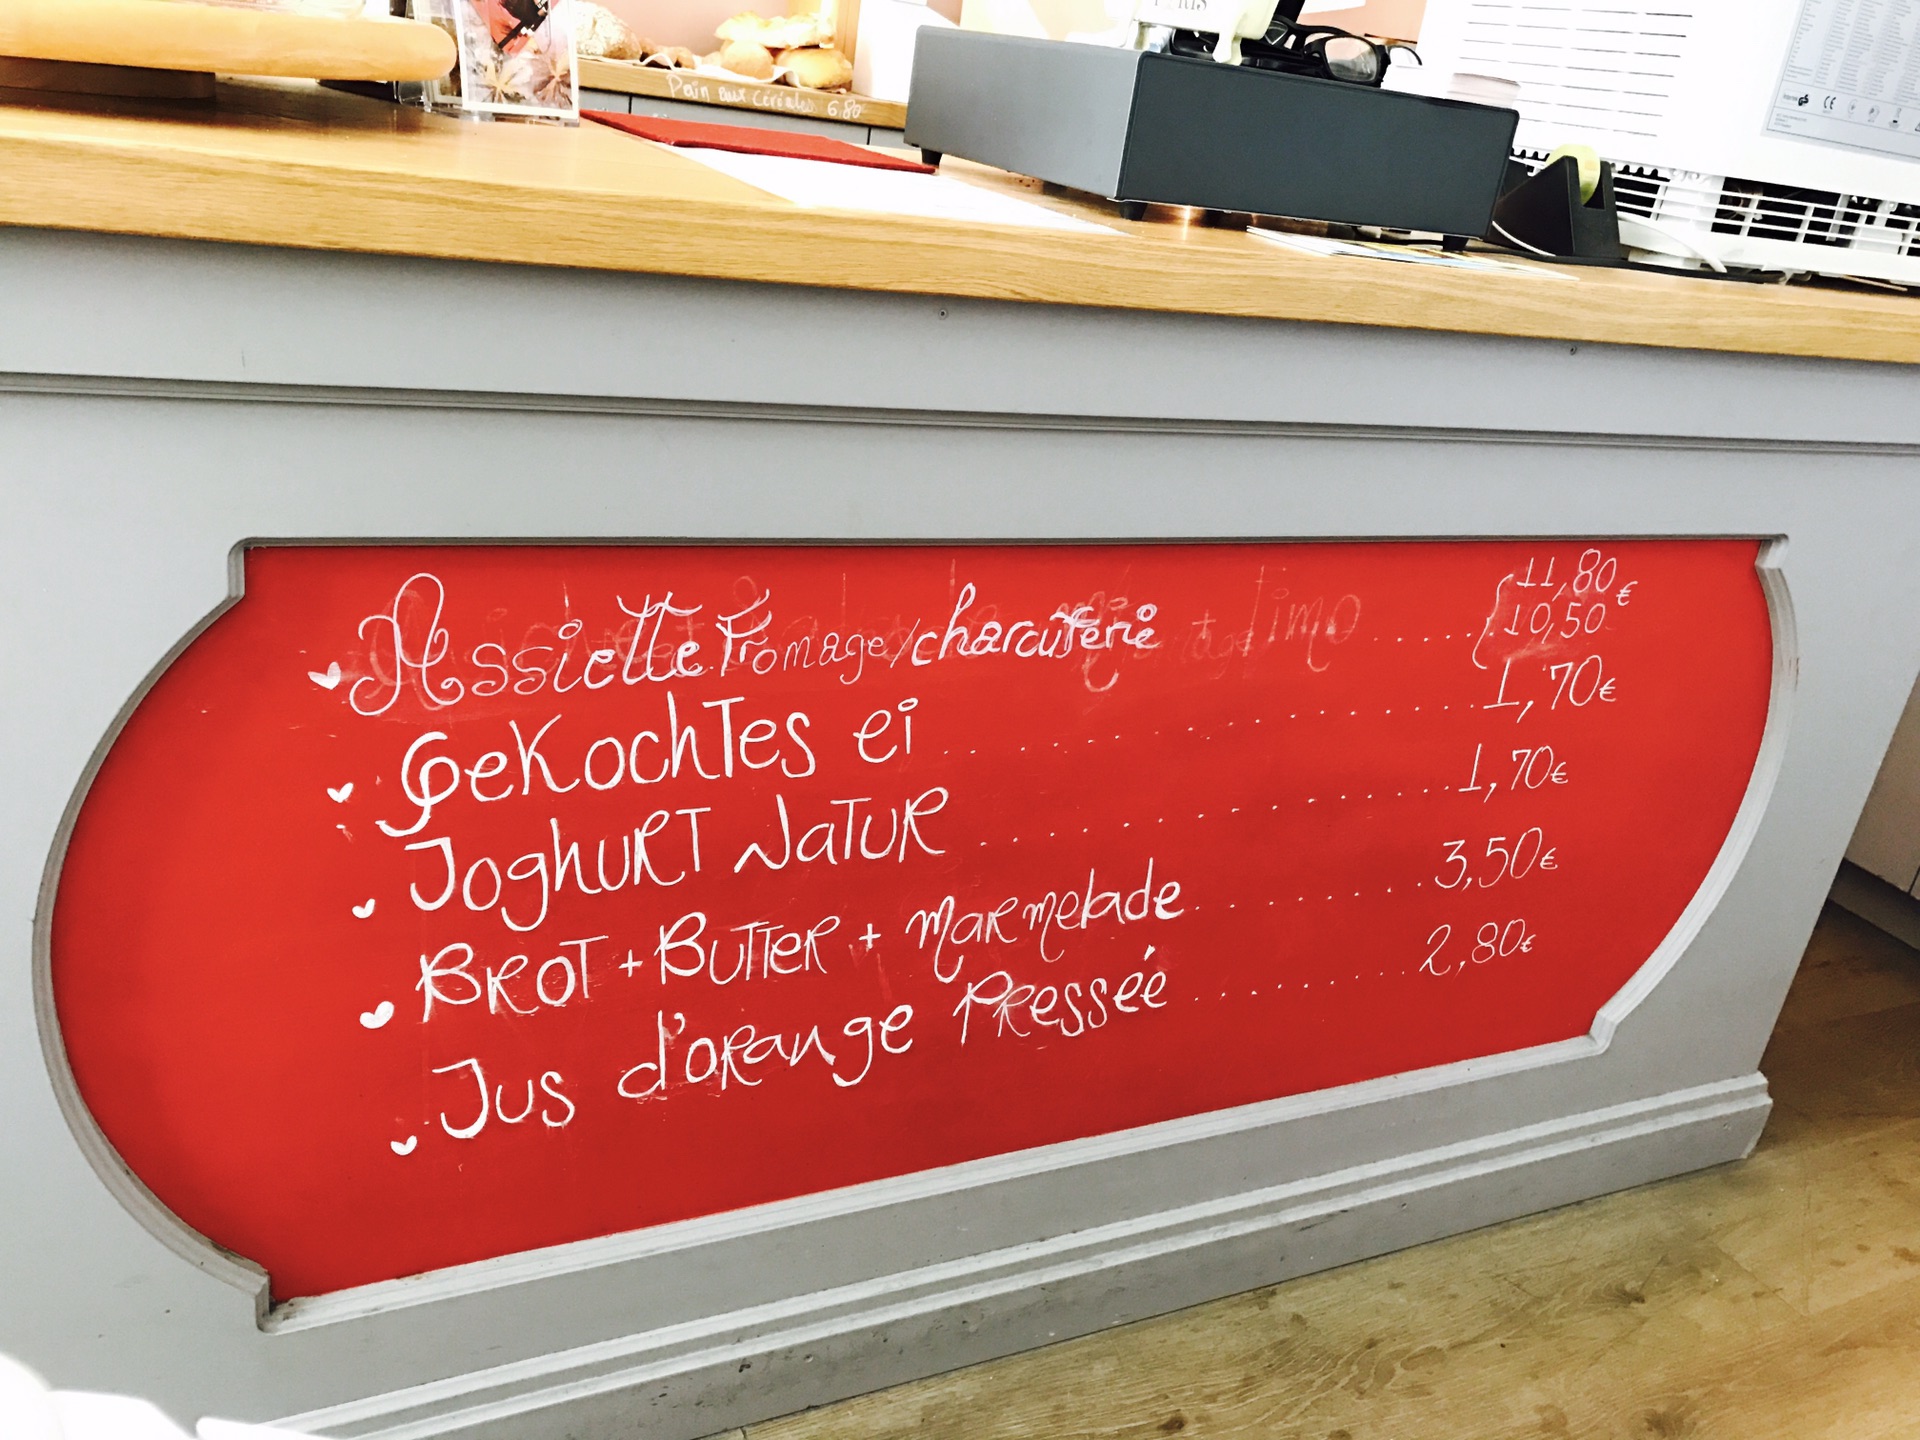 Pain aux céréales 6,80
Assiette Fromage/charcuterie ..... { 11,80 € 10,50
Gekochtes ei ............... 1,70€
Joghurt Natur ............. 1,70€
Brot + Butter + Marmelade ........ 3,50€
Jus d'orange Pressée ........ 2,80€